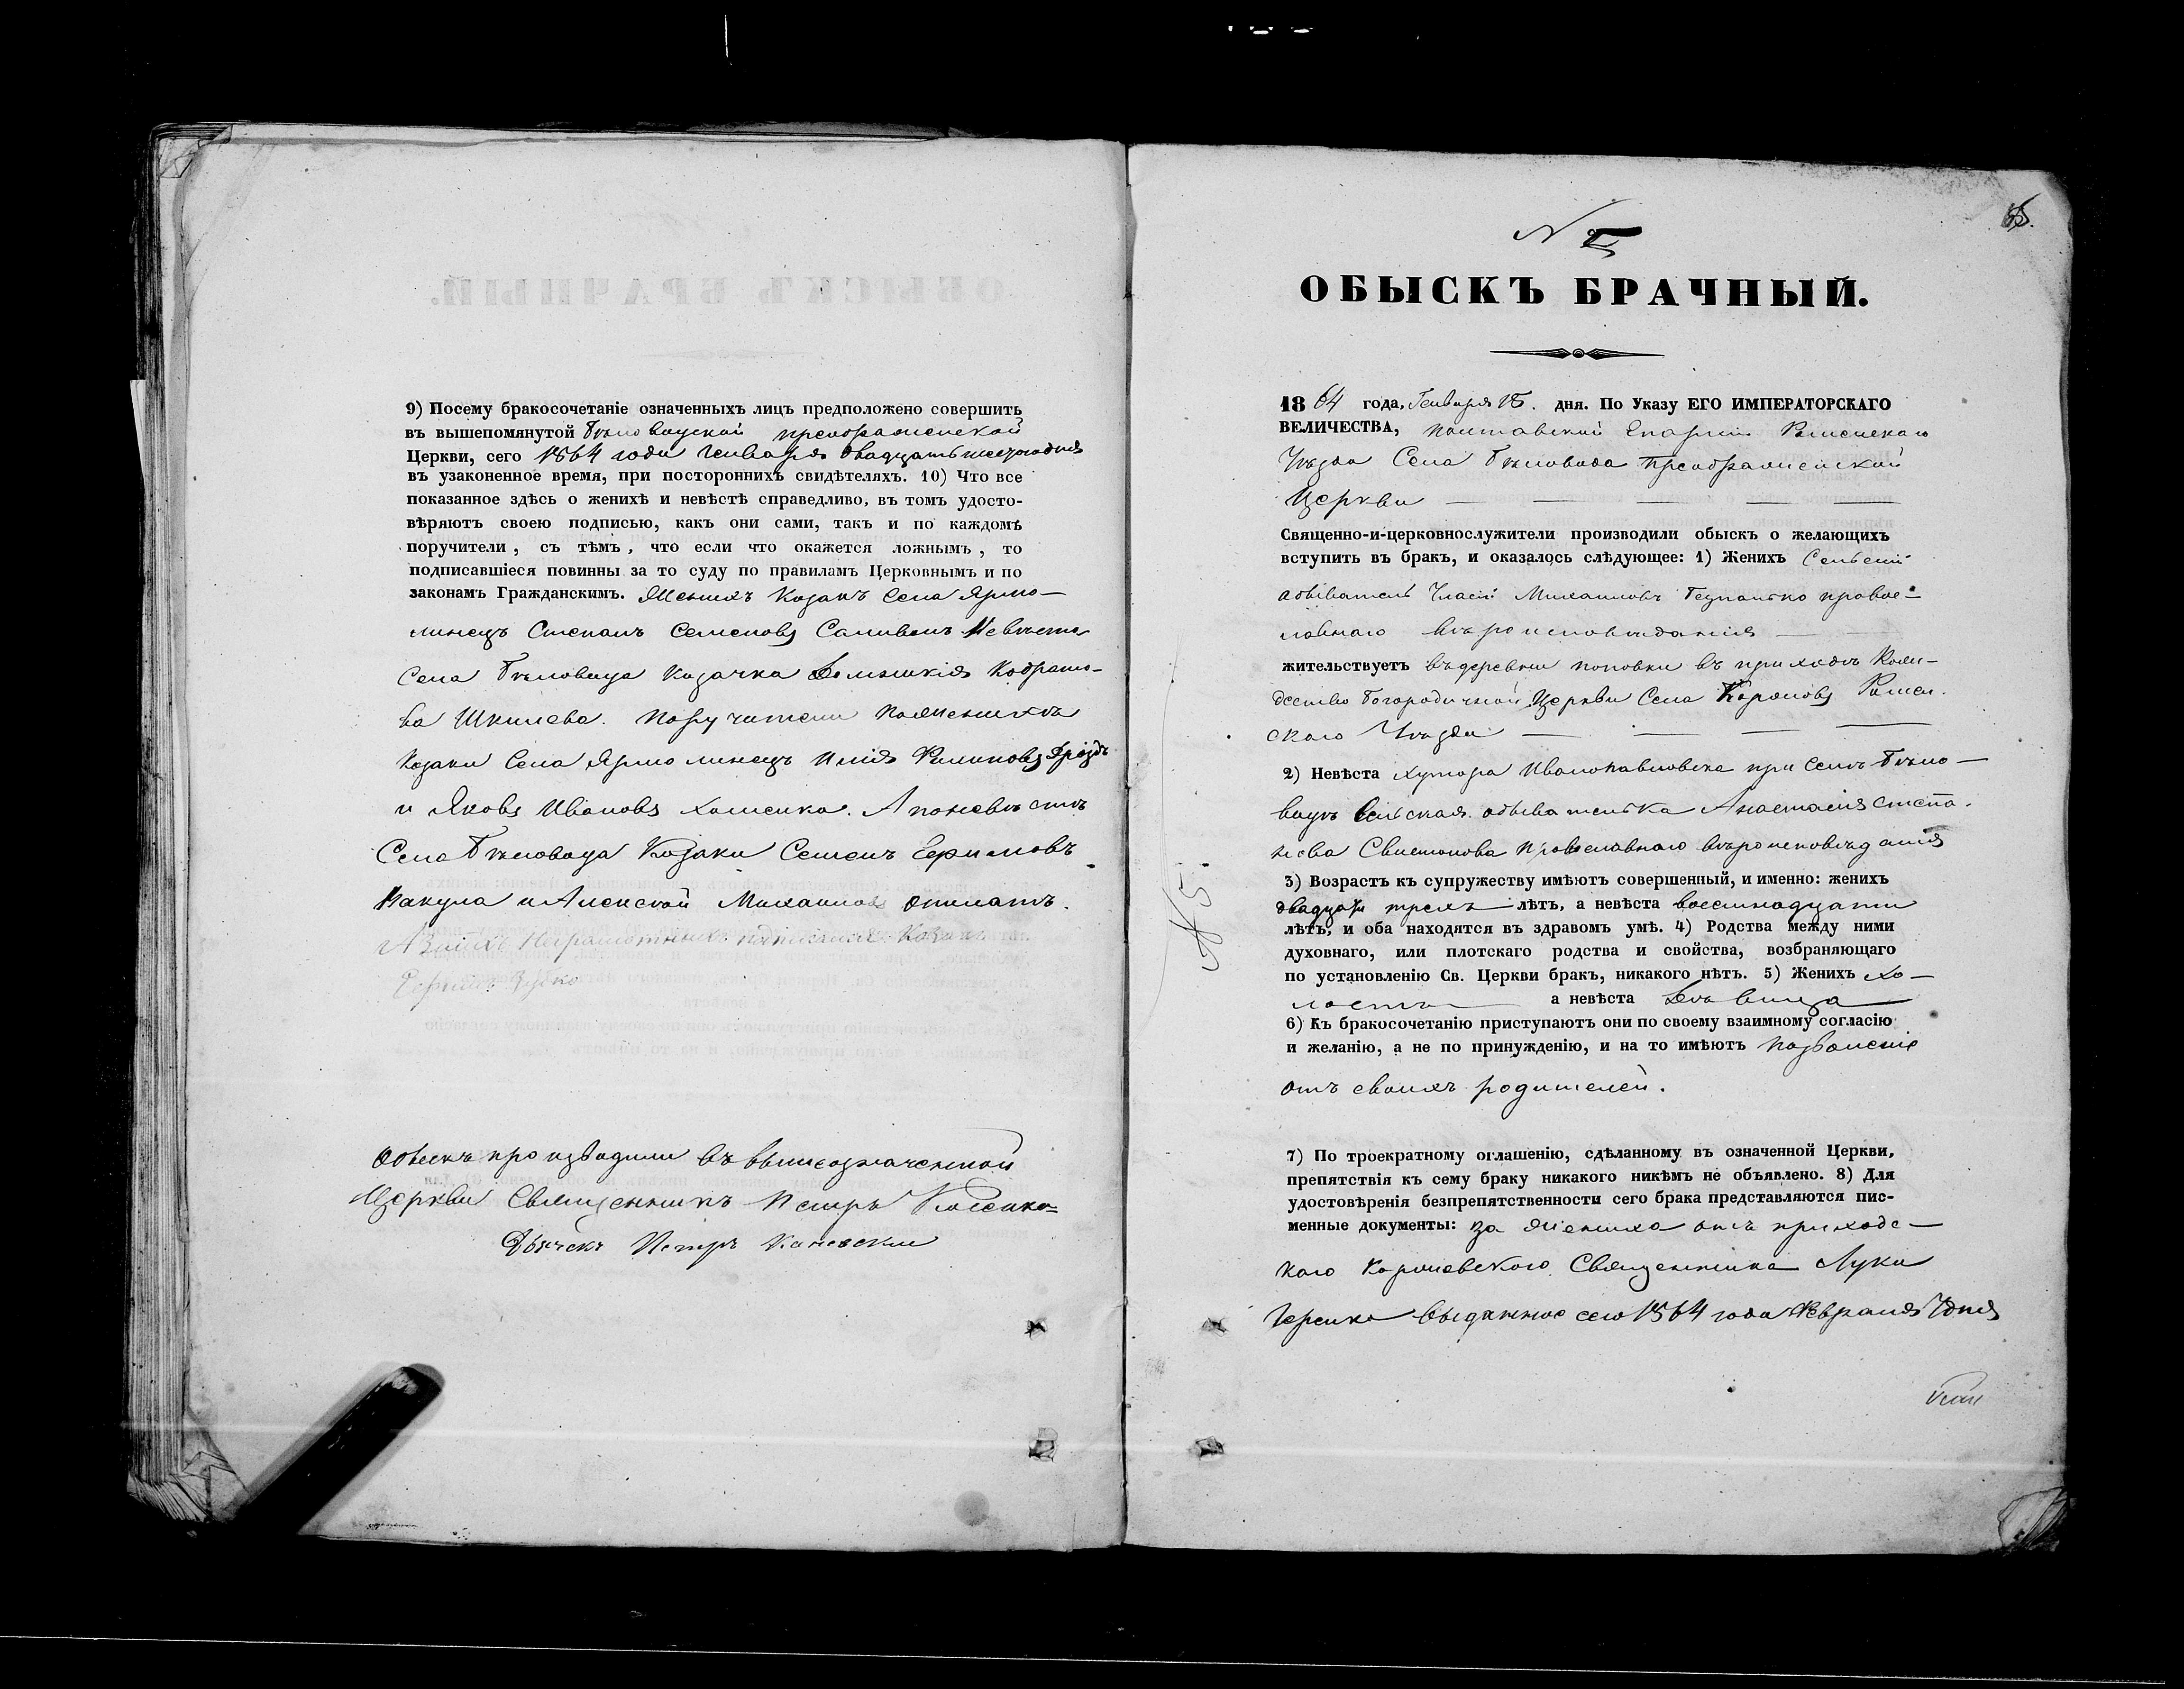 9) Посему бракосочетаніе означенныхъ лицъ предположено совершить
въ вышепомянутой Бѣловодской преображенской
Церкви, сего 1864 года Генваря двадцать шестого дня
въ узаконенное время, при постороннихъ свидѣтеляхъ. 10) Что все
показанное здѣсь о женихѣ и невѣстѣ справедливо, въ томъ удосто-
вѣряютъ своею подписью, какъ они сами, такъ и по каждомѣ
поручители, съ тѣмъ, что если что окажется ложнымъ, то
подписавшіеся повинны за то суду по правиламъ Церковнымъ и по
законамъ Гражданскимъ. Женихъ Козакъ Села Ярмо-
линецъ Степанъ Семеновъ Невѣста
Села Бѣловода Козачка Кодрато-
ва Шкилева. Поручители по женихѣ
Козаки Села Ярмолинецъ Илія Филиповъ Дроздъ
и Яковъ Ивановъ Хоменко. А по невѣстѣ
Села Бѣловода Козаки Семенъ Ефимовъ
Какула и Алексѣй Михаиловъ
неграмотныхъ Козакъ
Ефимъ Зубко
Обыскъ производили въ вышеозначенной
Церкви Священникъ Петръ
Дьячекъ Петръ Каневскій
N 5
ОБЫСКЪ БРАЧНЫЙ.
1864 года, Генваря дня. По Указу ЕГО ИМПЕРАТОРСКАГО
ВЕЛИЧЕСТВА, Полтавской Епархіи Роменскаго
Уѣзда Села Бѣловода Преображенской
Церкви
Священно-и-церковнослужители производили обыскъ о желающихъ
вступить въ бракъ, и оказалось слѣдующее: 1) Женихъ Сельскій
обыватель Михаиловъ правос-
лавнаго вѣроисповѣданія
жительствуетъ въ деревни Поповки въ приходѣ Рож-
дество Богородичной Церкви Села Ромен-
скаго Уѣзда
2) Невѣста хутора Иванопавловска при Селѣ Бѣло-
водѣ сельская обывателька Анастасія Степа-
нова Свистопова Православнаго вѣроисповѣданія
3) Возрастъ къ супружеству имѣютъ совершенный, и именно: женихъ
двадцати трехъ лѣтъ, а невѣста восемнадцати
лѣтъ, и оба находятся въ здравомъ умѣ. 4) Родства между ними
духовнаго, или плотскаго родства и свойства, возбраняющаго
по установленію Св. Церкви бракъ, никакого нѣтъ. 5) Женихъ хо-
лостъ а невѣста дѣвица
6) Къ бракосочетанію приступаютъ они по своему взаимному согласію
и желанію, а не по принужденію, и на то имѣютъ позволеніе
отъ своихъ родителей.
№ 5.
7) По троекратному оглашенію, сдѣланному въ означенной Церкви,
препятствія къ сему браку никакого никѣмъ не объявлено. 8) Для
удостовѣренія безпрепятственности сего брака представляются пис-
менные документы: за жениха отъ приходс-
каго Священника Луки
выданное сего 1864 года Февраля 7 дня